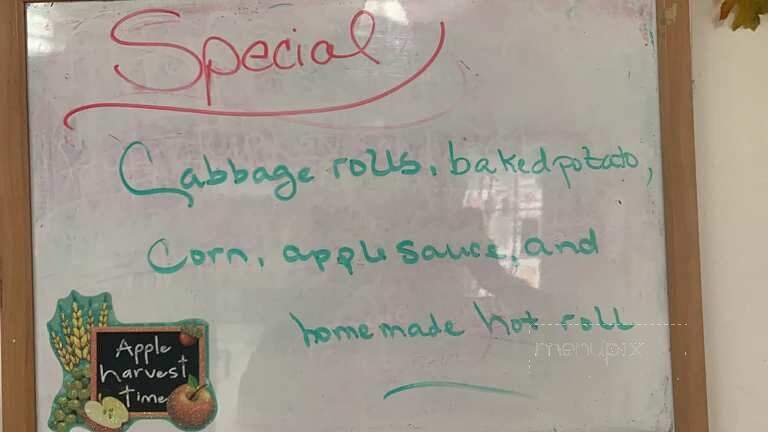 Special
Cabbage rolls, baked potato,
Corn, apple sauce, and
homemade hot roll
menupix
Apple
harvest
time